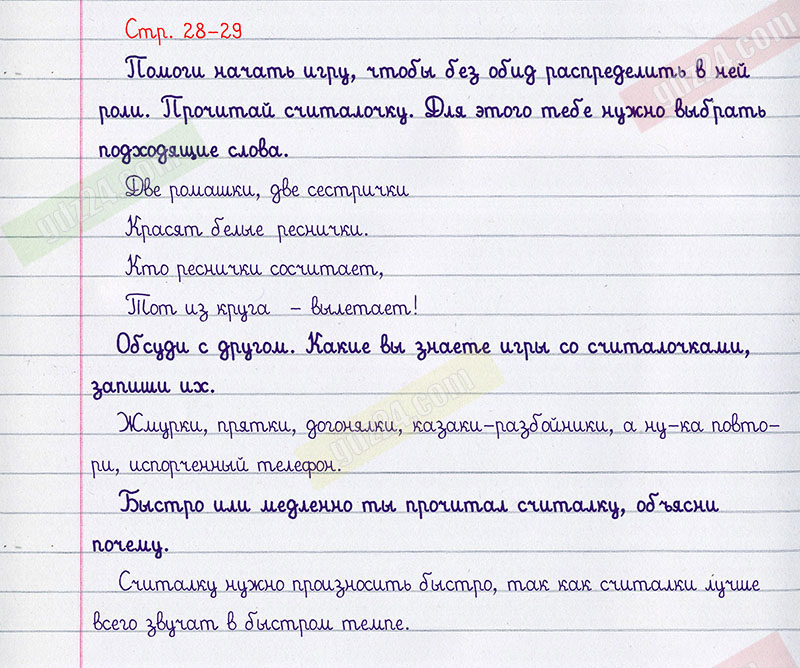 Стр. 28-29
Помоги начать игру, чтобы без обид распределить в ней
роли. Прочитай считалочку. Для этого тебе нужно выбрать
подходящие слова.
Две ромашки, две сестрички
Красят белые реснички.
Кто реснички сосчитает,
Тот из круга - вылетает!
Обсуди с другом. Какие вы знаете игры со считалочками,
запиши их.
Жмурки, прятки, догонялки, казаки-разбойники, а ну-ка повто-
ри, испорченный телефон.
Быстро или медленно ты прочитал считалку, объясни
почему.
Считалку нужно произносить быстро, так как считалки лучше
всего звучат в быстром темпе.
gdz24.com
gdz24.com
gdz24.com